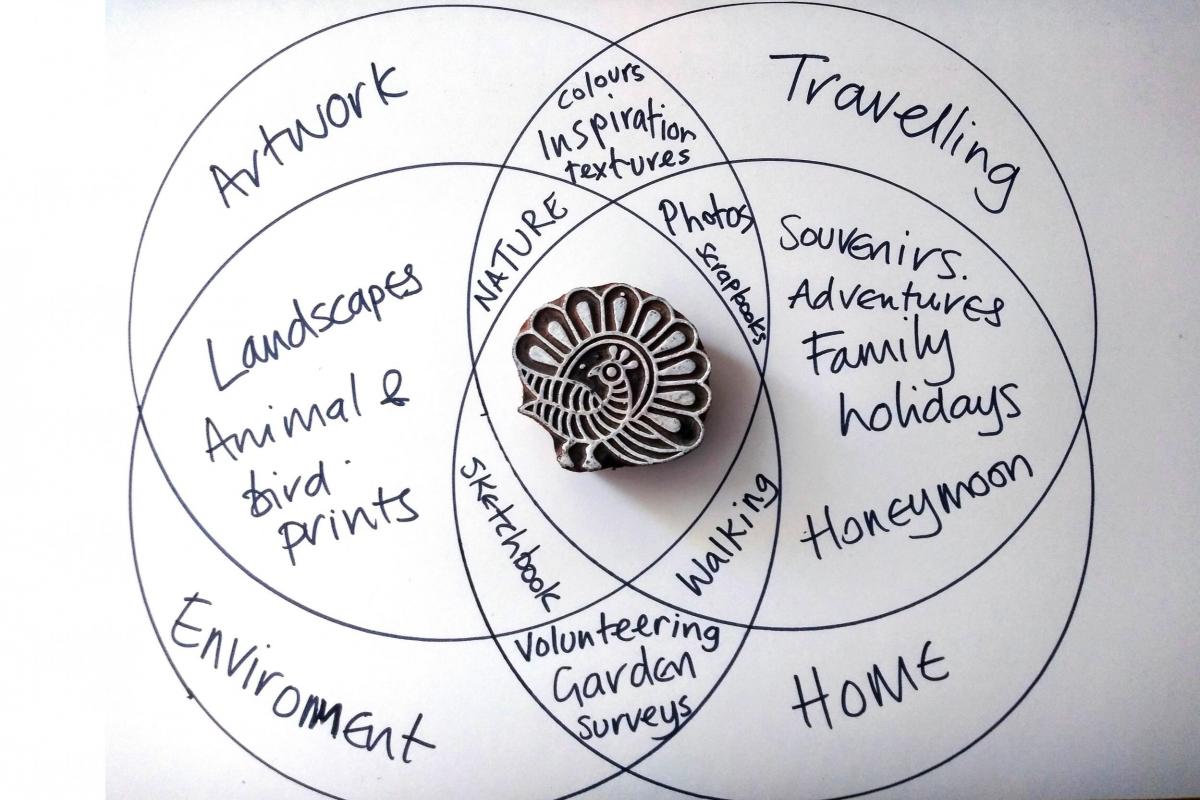 Artwork
colours
Inspiration
textures
Travelling
NATURE
Photos
scrapbooks
Landscapes
Animal &
bird
prints
Souvenirs.
Adventures
Family
holidays
Honeymoon
Sketchbook
Walking
Volunteering
Garden
surveys
Environment
HOME